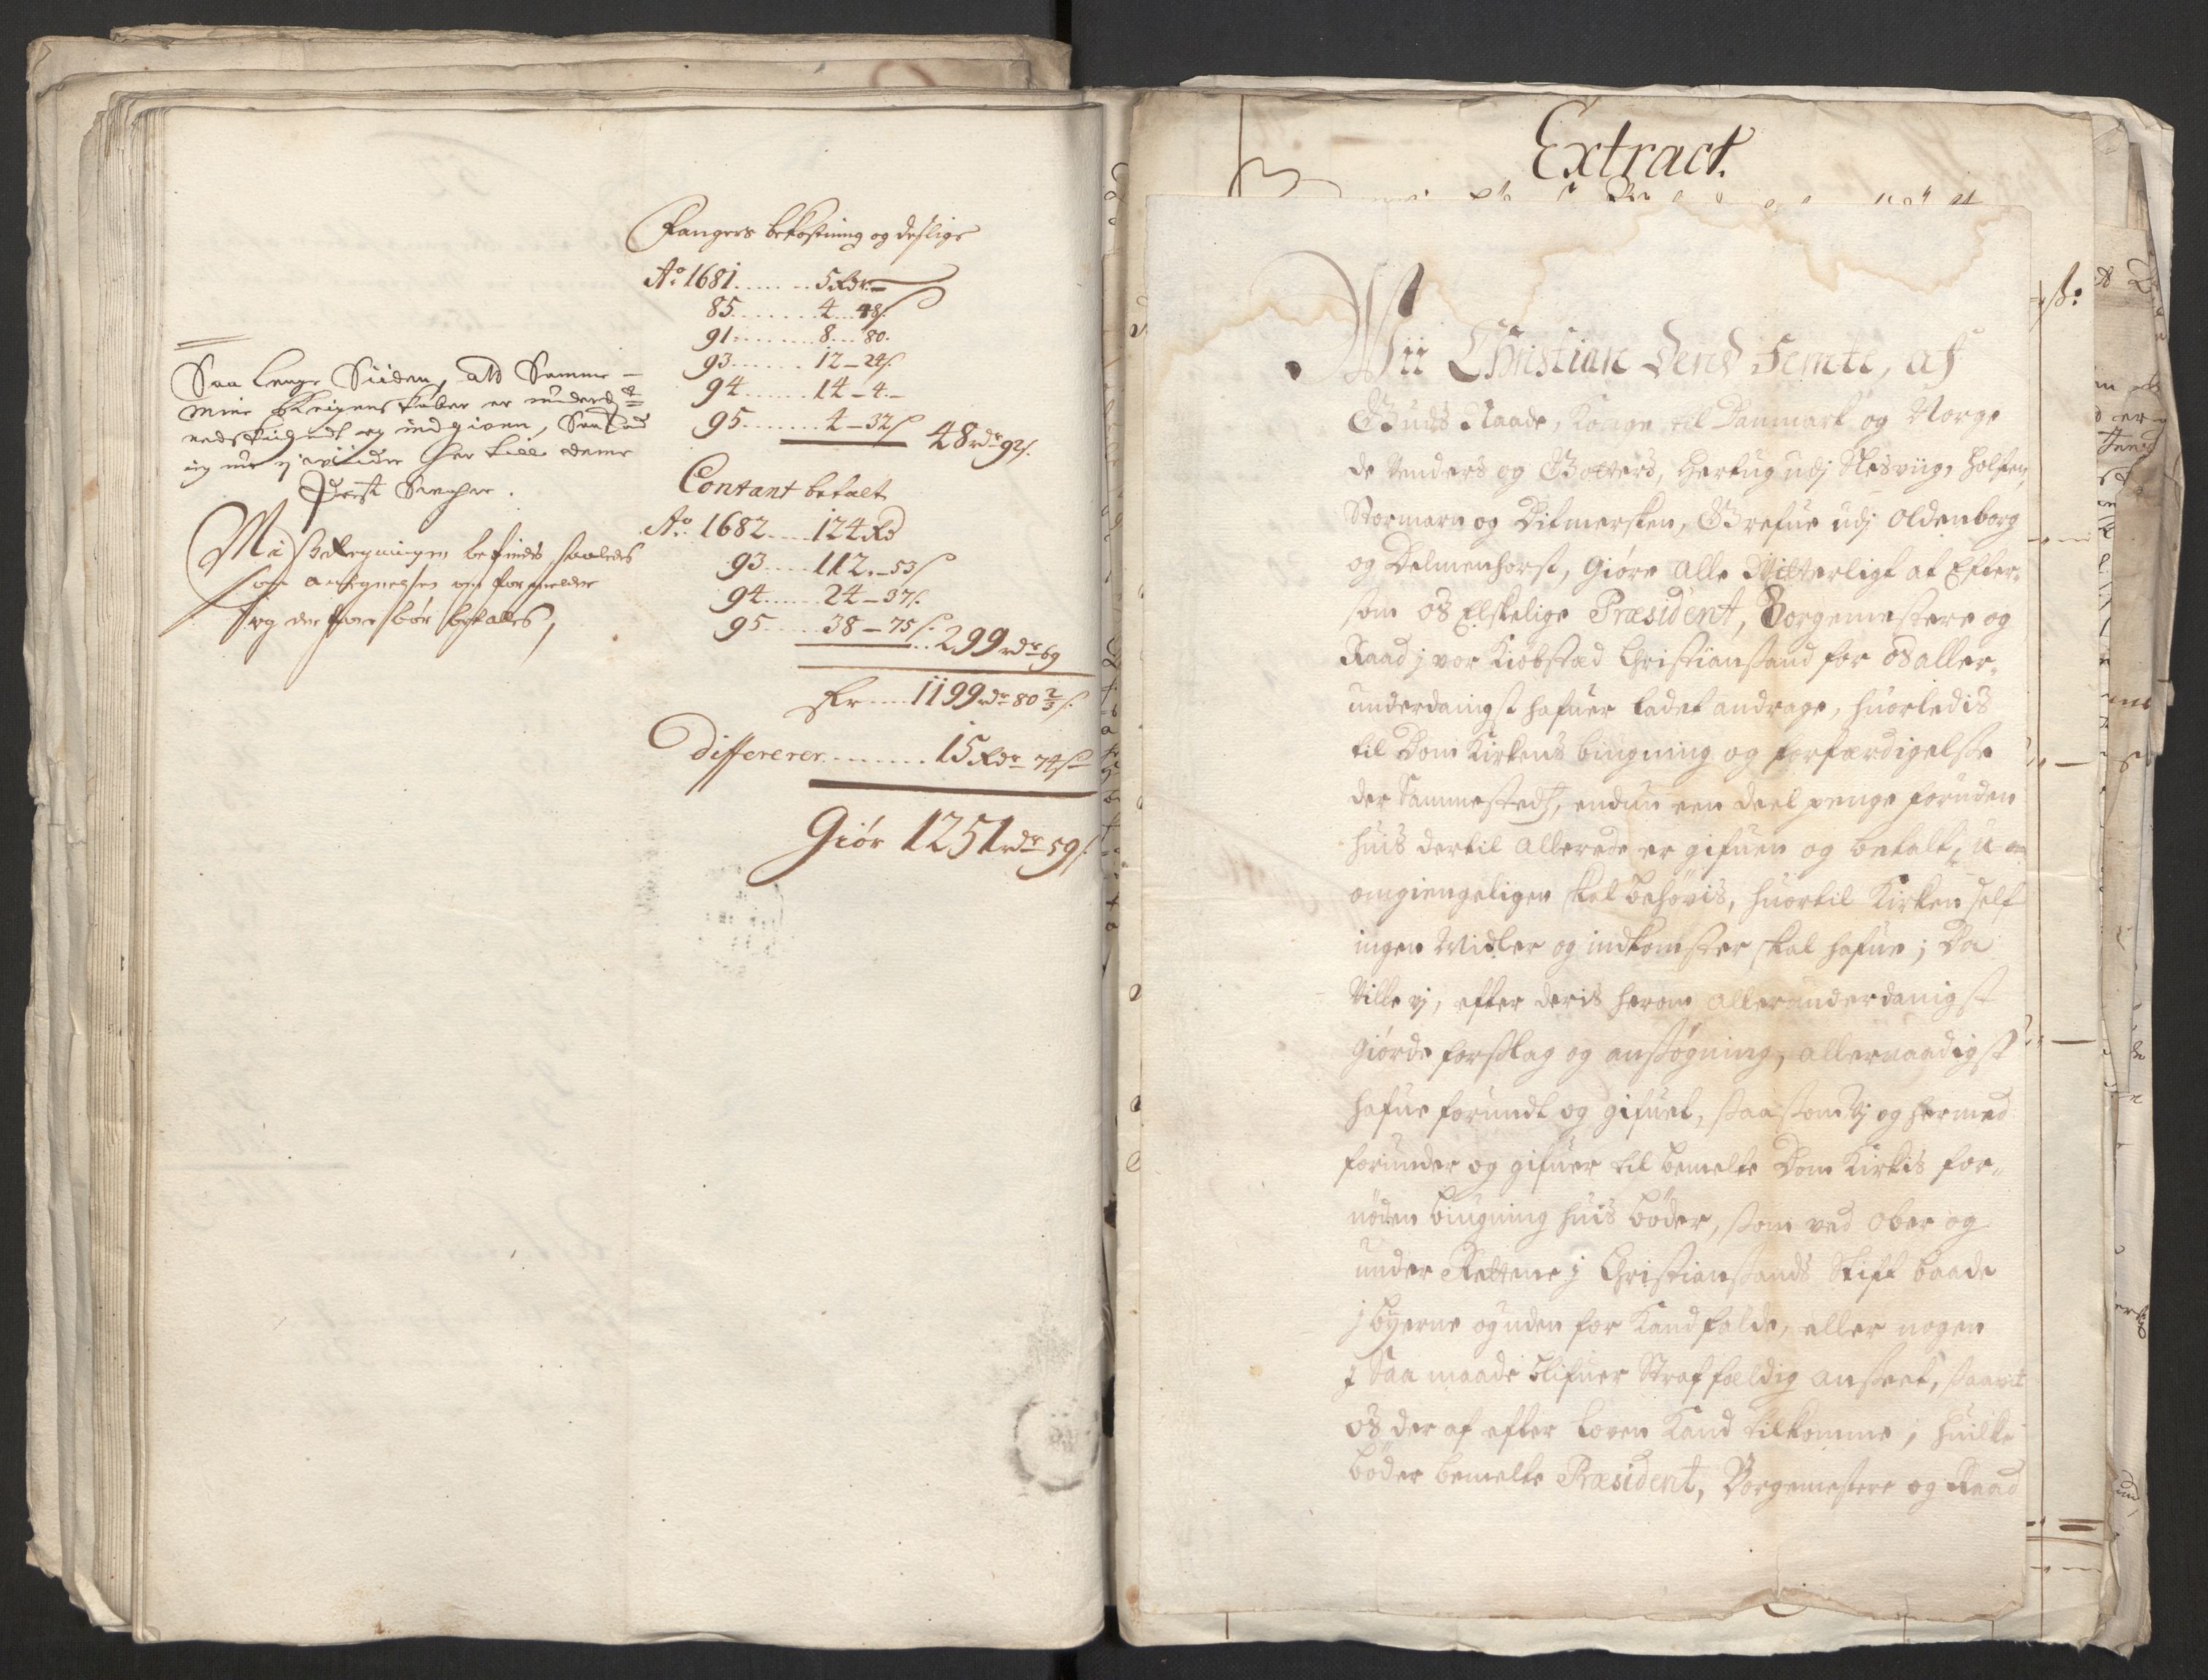 Fangers bekostning og deslige
Ao 1681 ....... 5 Rdr –
85 ........ 4 .. 48 s.
91 ........ 8 ... 80.
93 ...... 12 – 24 s.
94 ...... 14 – 4. –
95 ....... 4 – 32 s
48 rdr 92 s.
Contant betalt
Ao. 1682 .... 124 Rd
93 .... 112. – 53 s
94 ..... 24 – 37 s.
95 .... 38 – 75 s.
.. 299 rdr 69
Er .... 1199 rdr 80 2/3 s.
Differerer ........ 15 Rdr 74 s
Giør 1251 rdr 59 s.
Saa lenge Siiden, ald Samme
mine er
og indgiven, Saa
her till denne
Post Svare.
Med Beregningen befindes saaledes
som antegnelsen om formelder
og derfore bør betalles,
Extract.
Wii Christian Dend Femte, af
Guds Naade, Konge til Danmark og Norge
de Venders og Gotters, Hertug udj Slesviig, Holsten,
Stormarn og Ditmersken, Grefue udj Oldenborg
og Delmenhorst, Giøre alle Witterligt at Efter-
som os Elskelige Præsident, Borgemestere og
Raad j vor Kiøbstad Christiansand for os aller-
underdanigst hafuer ladet andrage, huorledis
til Dom Kirkens biugning og forfærdigelse
der Sammesteds, endnu een deel penge foruden
huis dertil allerede er gifuen og betalt, u-
omgiengeligen skal behøvis, huortil Kirken self
ingen Midler og indkomster skal hafue; Da
Ville vj, efter deris herom allerunderdanigst
giorde forslag og ansøgning, allernaadigst
hafue forundt og gifuet, saasom Vj og hermed
forunder og gifuer til bemelte Dom Kirkis for-
nøden biugning huis bøder, som ved Ober og
under Rettene j Christiansands Stift baade
j byerne og uden for Kand falde, eller nogen
j Saa maade blifuer Straffældig anseet, saavit
os der af efter loven Kand tilkomme; huilke
bøder bemelte Præsident, Borgemestere og Raad